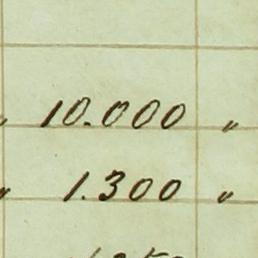 " 10.000 "
" 1.300 "